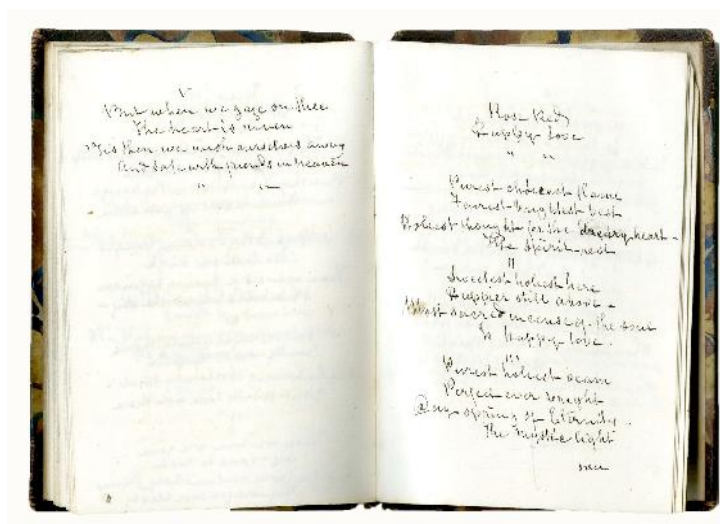 V
But when we gaze on thee
The heart is riven
Tis then we wish ourselves away
And safe with friends in heaven
" "
Rose Red
Happy love
" "
Purest choicest flame
Fairest brightest best
Holiest thought for the dreary heart -
The spirit rest
II
Sweetest holiest here
Happier still above -
Most sacred incense of the soul
Is happy love.
III
Purest holiest
Perfect ever
Day spring of Eternity.
The mystic light